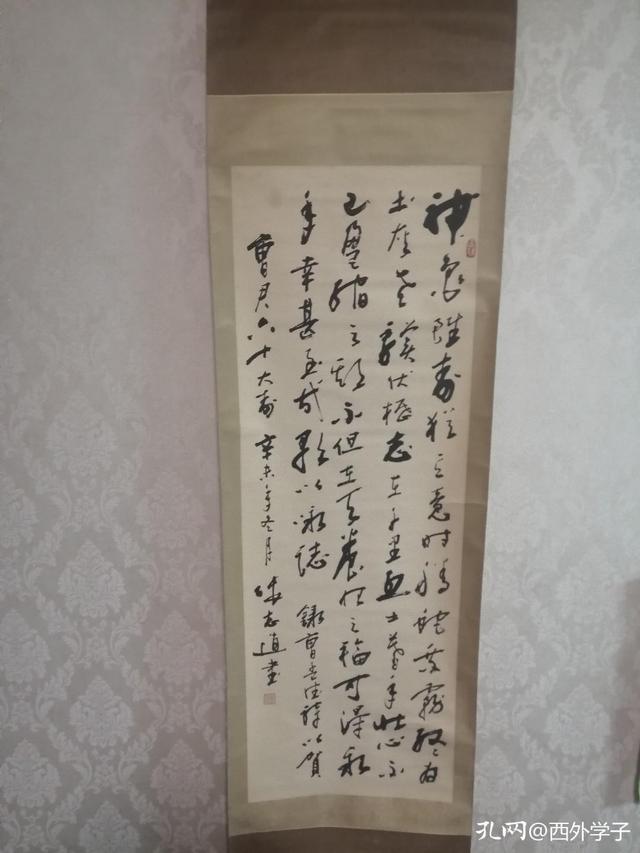 神龟雖寿犹有竟时腾蛇乘霧终为
土灰老骥伏櫪志在千里烈士暮年壮心不
已盈缩之期不但在天养怡之福可得永
年幸甚至哉歌以咏誌 錄曹孟德詩以賀
曹君六十大寿 辛未年冬月 志道書
孔网@西外学子